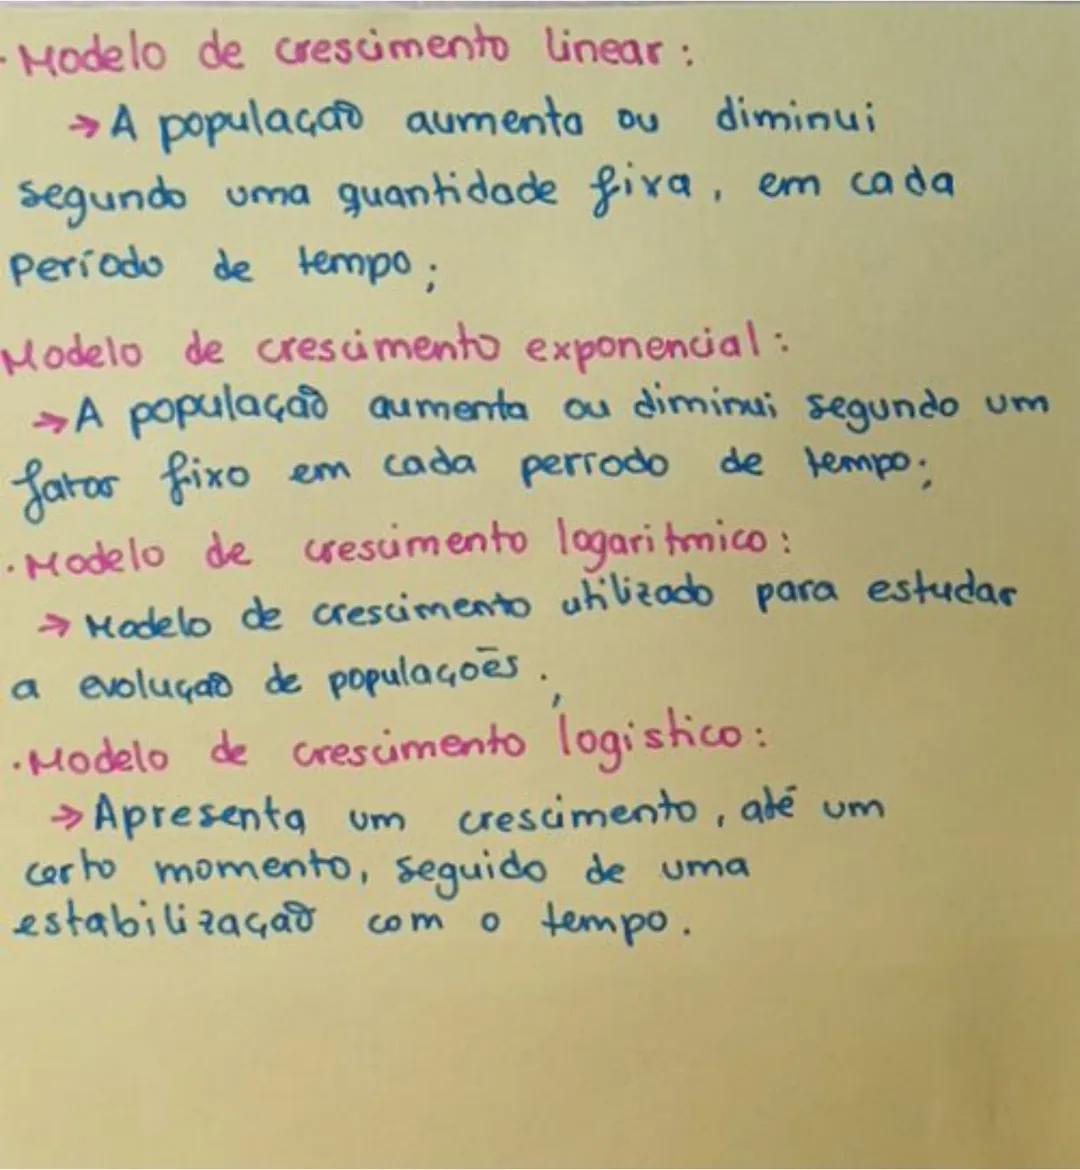 · Modelo de crescimento linear :
→ A população aumenta ou diminui
segundo uma quantidade fixa, em cada
período de tempo ;
Modelo de crescimento exponencial :
→ A população aumenta ou diminui segundo um
fator fixo em cada período de tempo ;
· Modelo de crescimento logaritmico :
→ Modelo de crescimento utilizado para estudar
a evolução de populações . ,
· Modelo de crescimento logistico :
→ Apresenta um crescimento, até um
certo momento, seguido de uma
estabilização com o tempo .